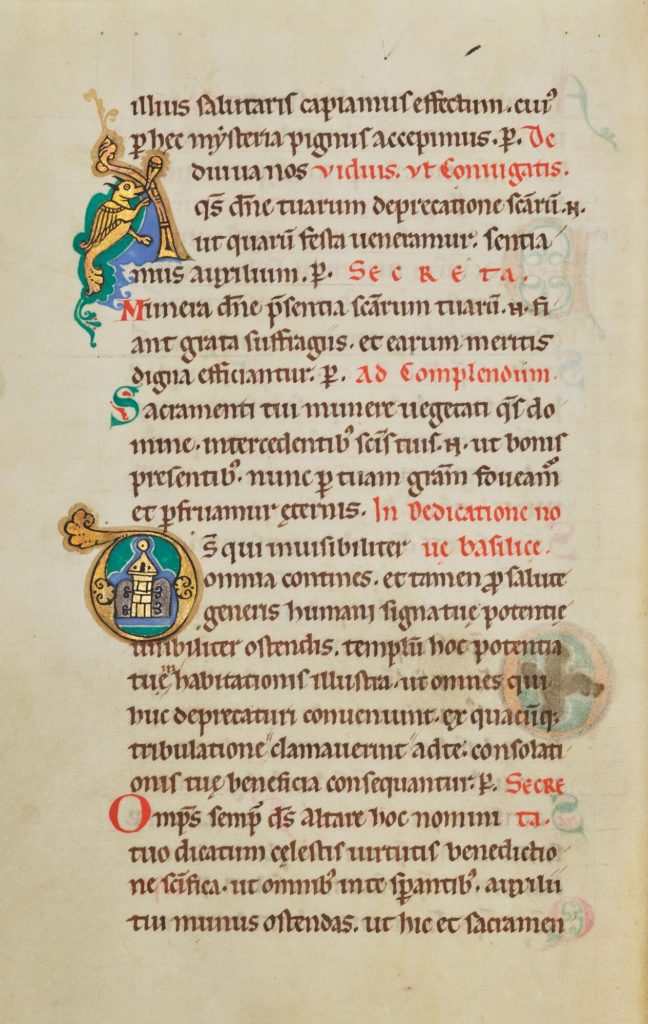 illius salutaris capiamus effectum. cui⁹
ꝑ hec mẏsteria pignus accepimus. P̄. De
Adiuua nos viduis. vt Coniugatis.
qs̄ dn̄e tuarum deprecatione scārū .N.
ut quarū festa ueneramur. sentia
mus auxilium. P̄. Secreta.
Munera dn̄e p̄sentia scārum tuarū .N. fi
ant grata suffragiis. et earum meritis
digna efficiantur. P̄. Ad Complendum.
Sacramenti tui munere uegetati qs̄ do
mine. intercedentib⁹ scīs tuis .N. ut bonis
presentib⁹. nunc ꝑ tuam grām foueam̄
et ꝑfruamur ęternis. In Dedicatione no
Ds̄ qui inuisibiliter ue basilice.
omnia contines. et tamen ꝓ salute
generis humani signa tuę potentię
uisibiliter ostendis. templū hoc potentia
tuę inhabitationis illustra. ut omnes qui
huc deprecaturi conueniunt. ex quacūq;
tribulatione clamauerint ad te. consolati
onis tuę beneficia consequantur. P̄. Secre
Omp̄s semp̄ ds̄ altare hoc nomini ta.
tuo dicatum cęlestis uirtutis benedictio
ne scīfica. ut omnib⁹ in te sꝑantib⁹. auxilii
tui munus ostendas. ut hic et sacramen